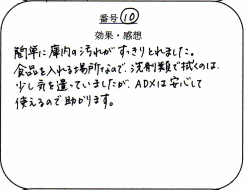 番号⑩
効果・感想
簡単に庫内の汚れがすっきりとれました。
食品を入れる場所なので、洗剤類で拭くのは、
少し気を遣っていましたが、ADXは安心して
使えるので助かります。